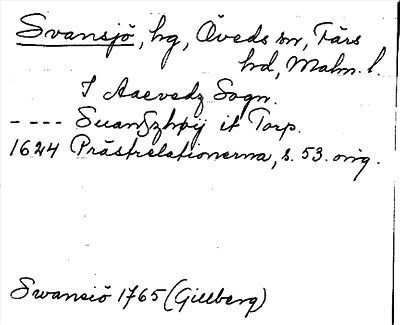 Svansjö, hg, Öveds sn, Färs
hd, Malm. l.
I Aaevedz Sogn.
---- Suanszhøij it Torp.
1624 Prästrelationerna, s. 53. orig.
Swansiö 1765 (Gillberg)